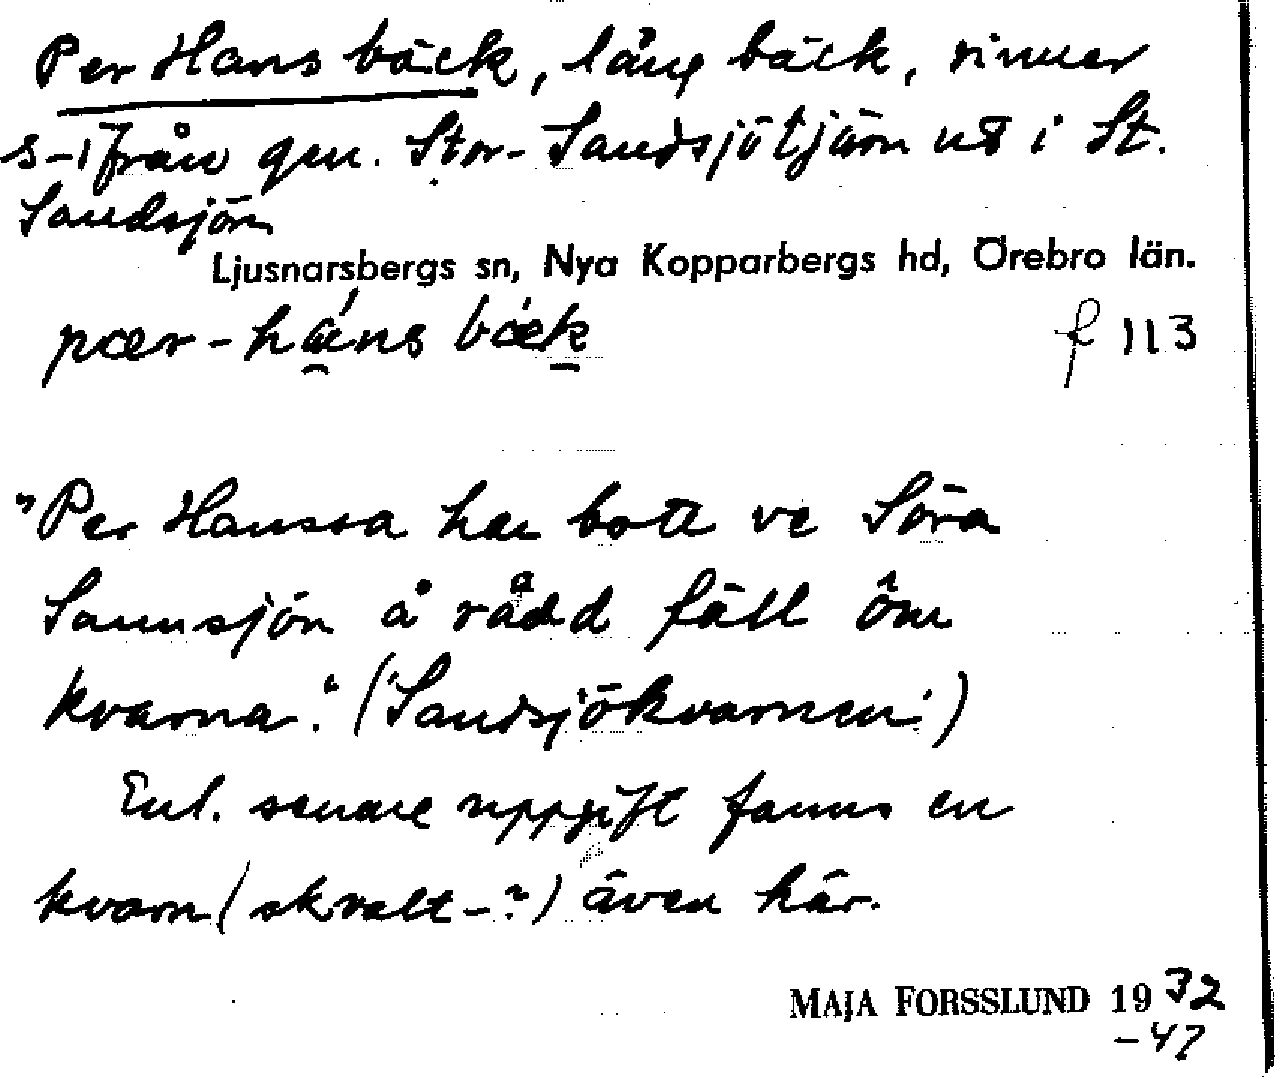 Per Hans bäck, lång bäck, rinner
s-ifrån gm. Stor-Sandsjötjärn ut i St.
Sandsjön
Ljusnarsbergs sn, Nya Kopparbergs hd, Örebro län.
pær-háns bæk
f 113
"Per Hanssa har bott ve Söra
Sannsjön å rådd fäll ôm
kvarna." (Sandsjökvarnen.)
Enl. senare uppgift fanns en
kvarn (skvalt-?) även här.
MAJA FORSSLUND 1932
-47